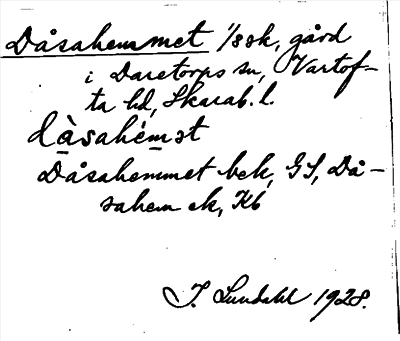 Dåsahemmet 1/8 sk, gård
i Daretorps sn, Vartof-
ta hd, Skarab. l.
dàsahémst
Dåsahemmet bek, GS, Då-
sahem ek, Kb
I. Lundahl 1928.